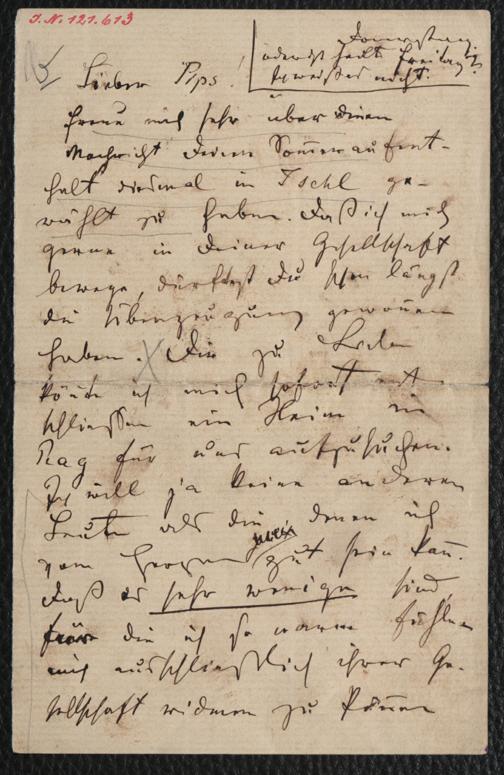 I. N. 121.613
Donnerstag
oder ist heut Freitag?
Ich weiß es nicht.
Lieber Pips!
Freue mich sehr über deinen
Nachricht deinen Sommeraufent-
halt diesmal in Ischl ge-
wählt zu haben. Daß ich mich
gerne in deiner Gesellschaft
bewege, dürftest du schon längst
die Überzeugung gewonnen
haben. X Die zu
könnte ich mich sofort ent-
schließen ein Heim in
Prag für uns aufzusuchen.
Ich will ja keine anderen
Leute als die denen ich
vom Herzen gut sein kann.
Daß es sehr wenige sind,
für die ich so warm fühle
mich ausschließlich ihrer Ge-
sellschaft widmen zu können